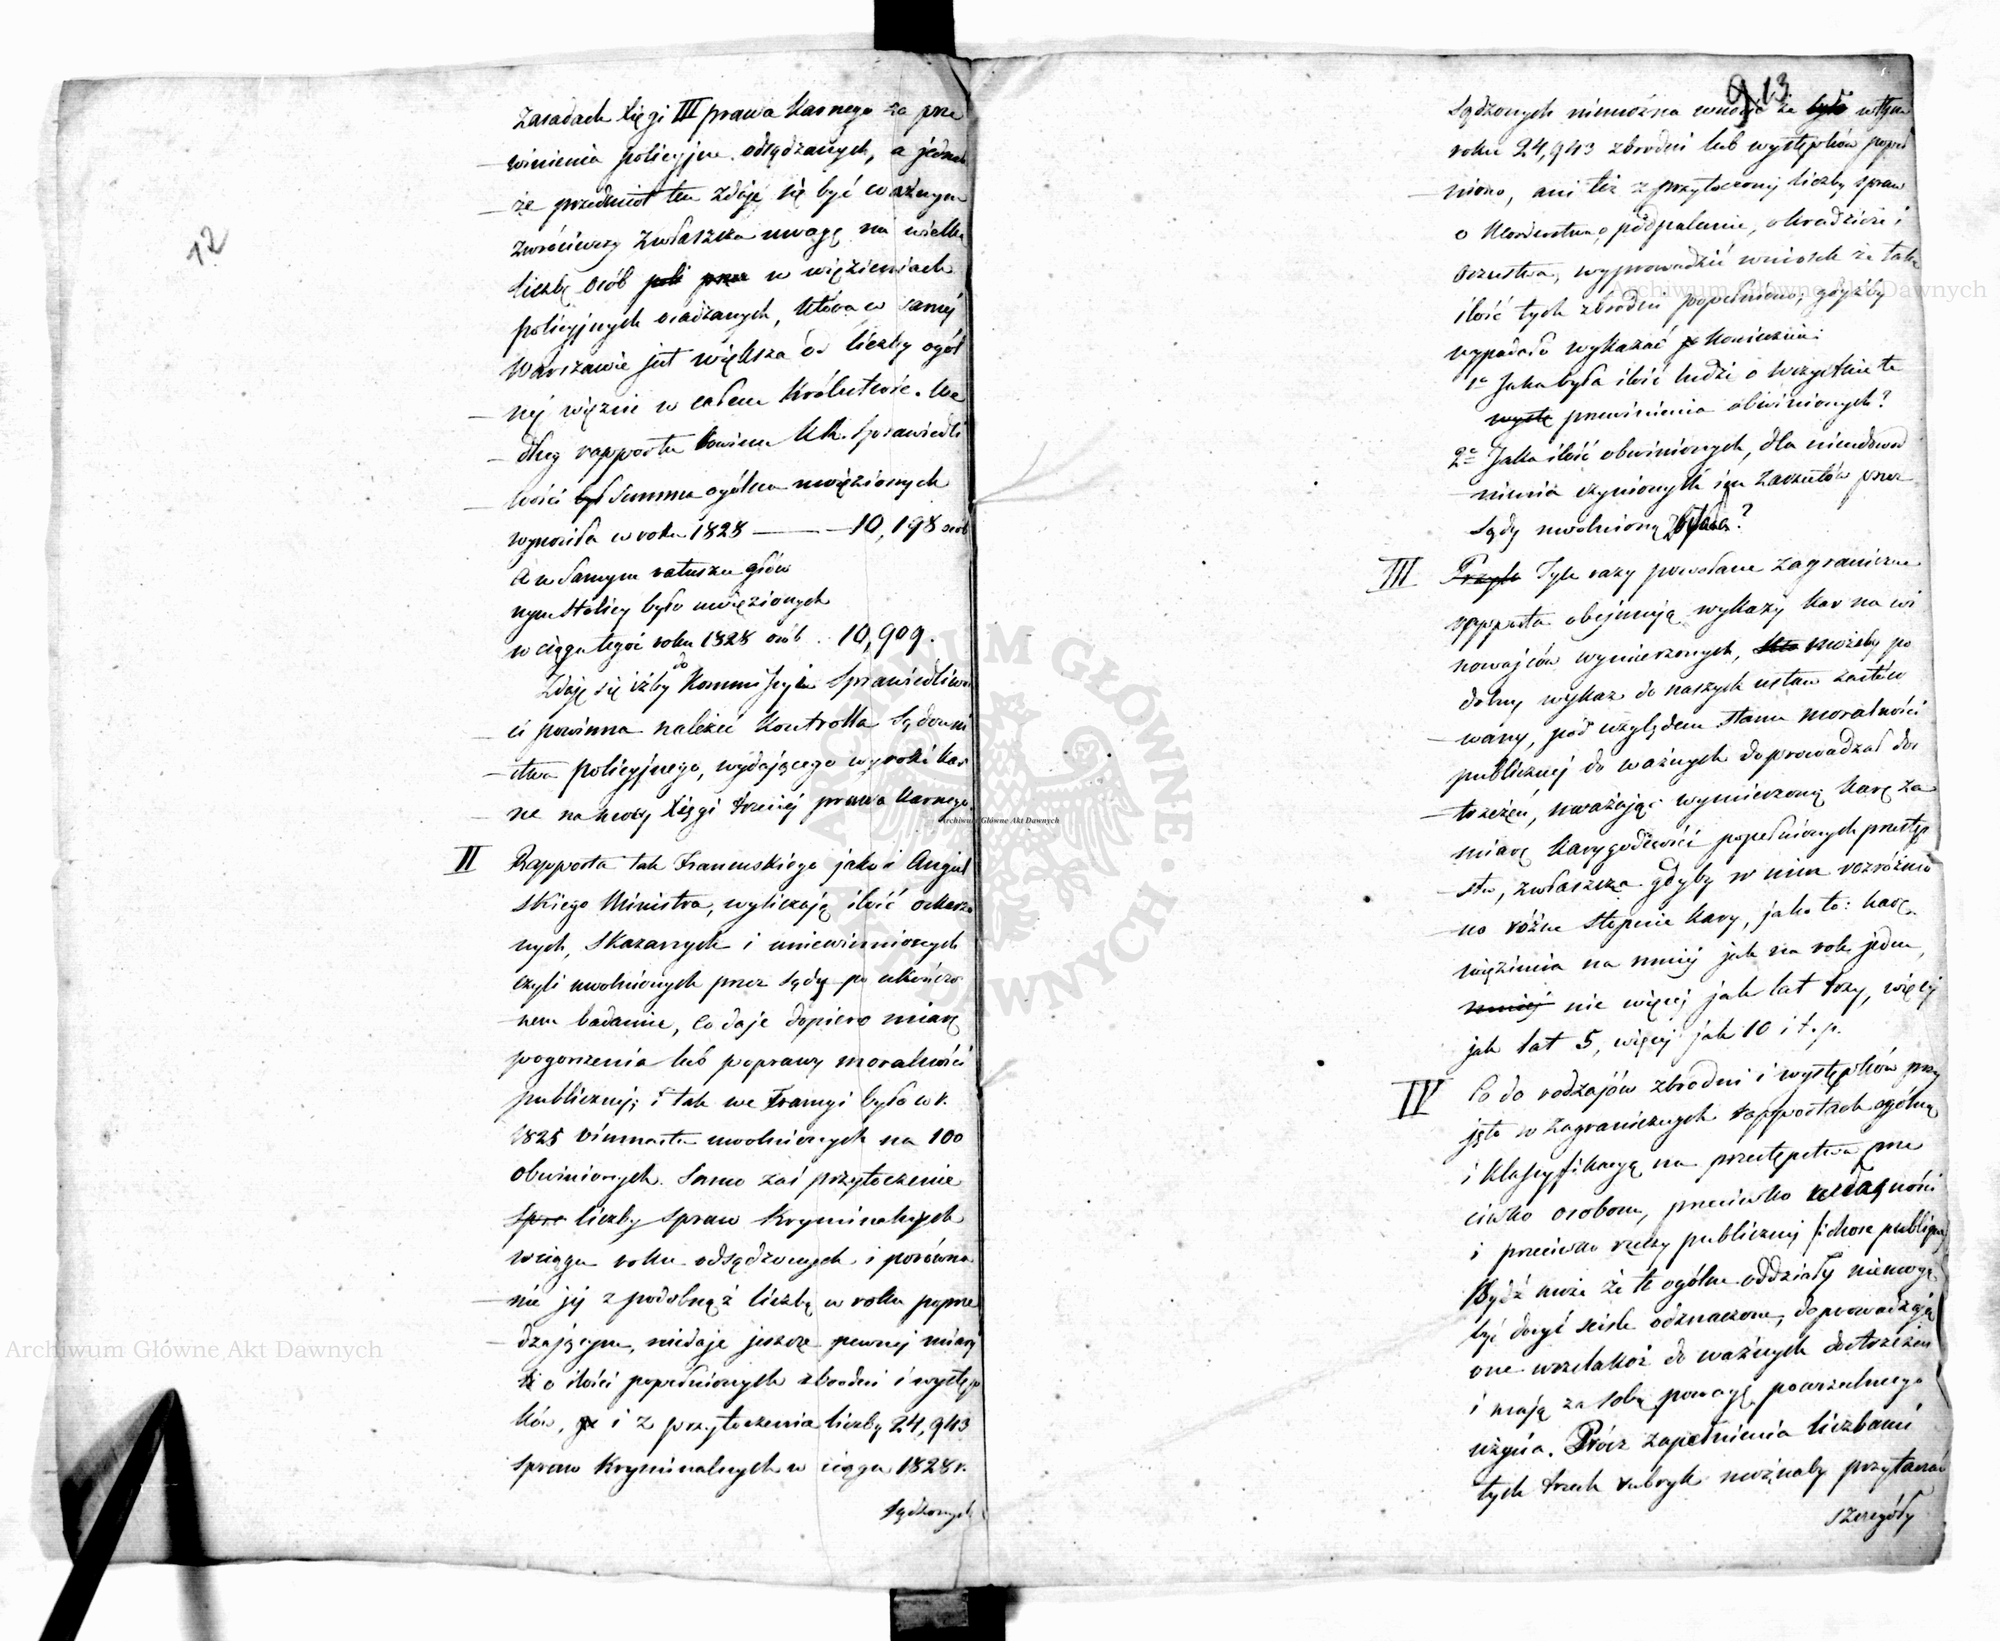 12
zasadach xięgi III prawa karnego za prze
winienia policyjne odsądzanych, a jednak
że przedmiot ten zdaje się być ważnym
zwróciwszy zwłaszcza uwagę na wielką
liczbę osób w więzieniach
policyjnych osadzanych, która w samej
Warszawie jest większa od liczby ogól
nej więźni w całem Królestwie. We
dług rapportu bowiem KR. Sprawiedli
wości summa ogólna uwięzionych
wynosiła w roku 1828 ——— 10,198 osób
A w samym ratuszu głów
nym stolicy było uwięzionych
w ciągu tegoż roku 1828 osób .. 10,909.
Zdaje się iżby do Kommissyi Sprawiedliwoś
ci powinna należeć kontrolla sądowni
ctwa policyjnego, wydającego wyroki kar
ne na mocy xięgi trzeciej prawa karnego.
II Rapporta tak Francuskiego jako i Angiel
skiego Ministra, wyliczają ilość oskarżo
nych, skazanych i uniewinnionych
czyli uwolnionych przez sądy po ukończo
nem badaniu, co daje dopiero miarę
pogorszenia lub poprawy moralności
publicznej; i tak we Francyi było w r.
1825 uwolnionych na 100
obwinionych. Samo zaś przytoczenie
liczby spraw kryminalnych
w ciągu roku odsądzonych i porówna
nie jej z podobnąż liczbą w roku poprze
dzającym, niedaje jeszcze pewnej miary
o ilości popełnionych zbrodni i występ
ków, i z przytoczenia liczby 24,943
spraw kryminalnych w ciągu 1828 r.
sądzonych
9 13
sądzonych niemożna wnosić że było w tym
roku 24,943 zbrodni lub występków popeł
niono, ani też z przytoczonej liczby spraw
o morderstwa, podpalanie, o kradzieże i
oszustwa, wyprowadzić wniosek że taka
ilość tych zbrodni popełniono; gdyżby
wypadało wykazać koniecznie:
1° Jaka była ilość ludzi o wszystkie te
przewinienia obwinionych?
2° Jaka ilość obwinionych, dla nieudowod
nienia czynionych im zarzutów przez
sądy uwolnioną została?
III Tyle razy powołane zagraniczne
rapporta obejmują wykazy kar na wi
nowajców wymierzonych, możeby po
dobny wykaz do naszych ustaw zastóso
wany, pod względem stanu moralności
publicznej do ważnych doprowadzał do
strzeżeń, uważając wymierzoną karę za
miarę karygodności popełnionych przestęp
stw, zwłaszcza gdyby w nim rozróżnio
no różne stopnie kary, jako to: karę
więzienia na mniej jak na rok jeden,
nie więcej jak lat trzy, więcej
jak lat 5, więcej jak 10 i t. p.
IV Co do rodzajów zbrodni i występków przy
jęto w zagranicznych rapportach ogólną
i klassyfikacyą na przestępstwa prze
ciwko osobom, przeciwko własności
i przeciwko rzeczy publicznej (chose publique)
Bydź może że te ogólne oddziały niemogą
być dosyć ściśle odznaczone, doprowadzają
one wszelakoż do ważnych dostrzeżeń
i mają za sobą powagę powszechnego
użycia. Prócz zapełnienia liczbami
tych trzech rubryk możnaby przytaczać
szczegóły
Archiwum Główne Akt Dawnych
Archiwum Główne Akt Dawnych
Archiwum Główne Akt Dawnych
ARCHIWUM GŁÓWNE · AKT DAWNYCH ·